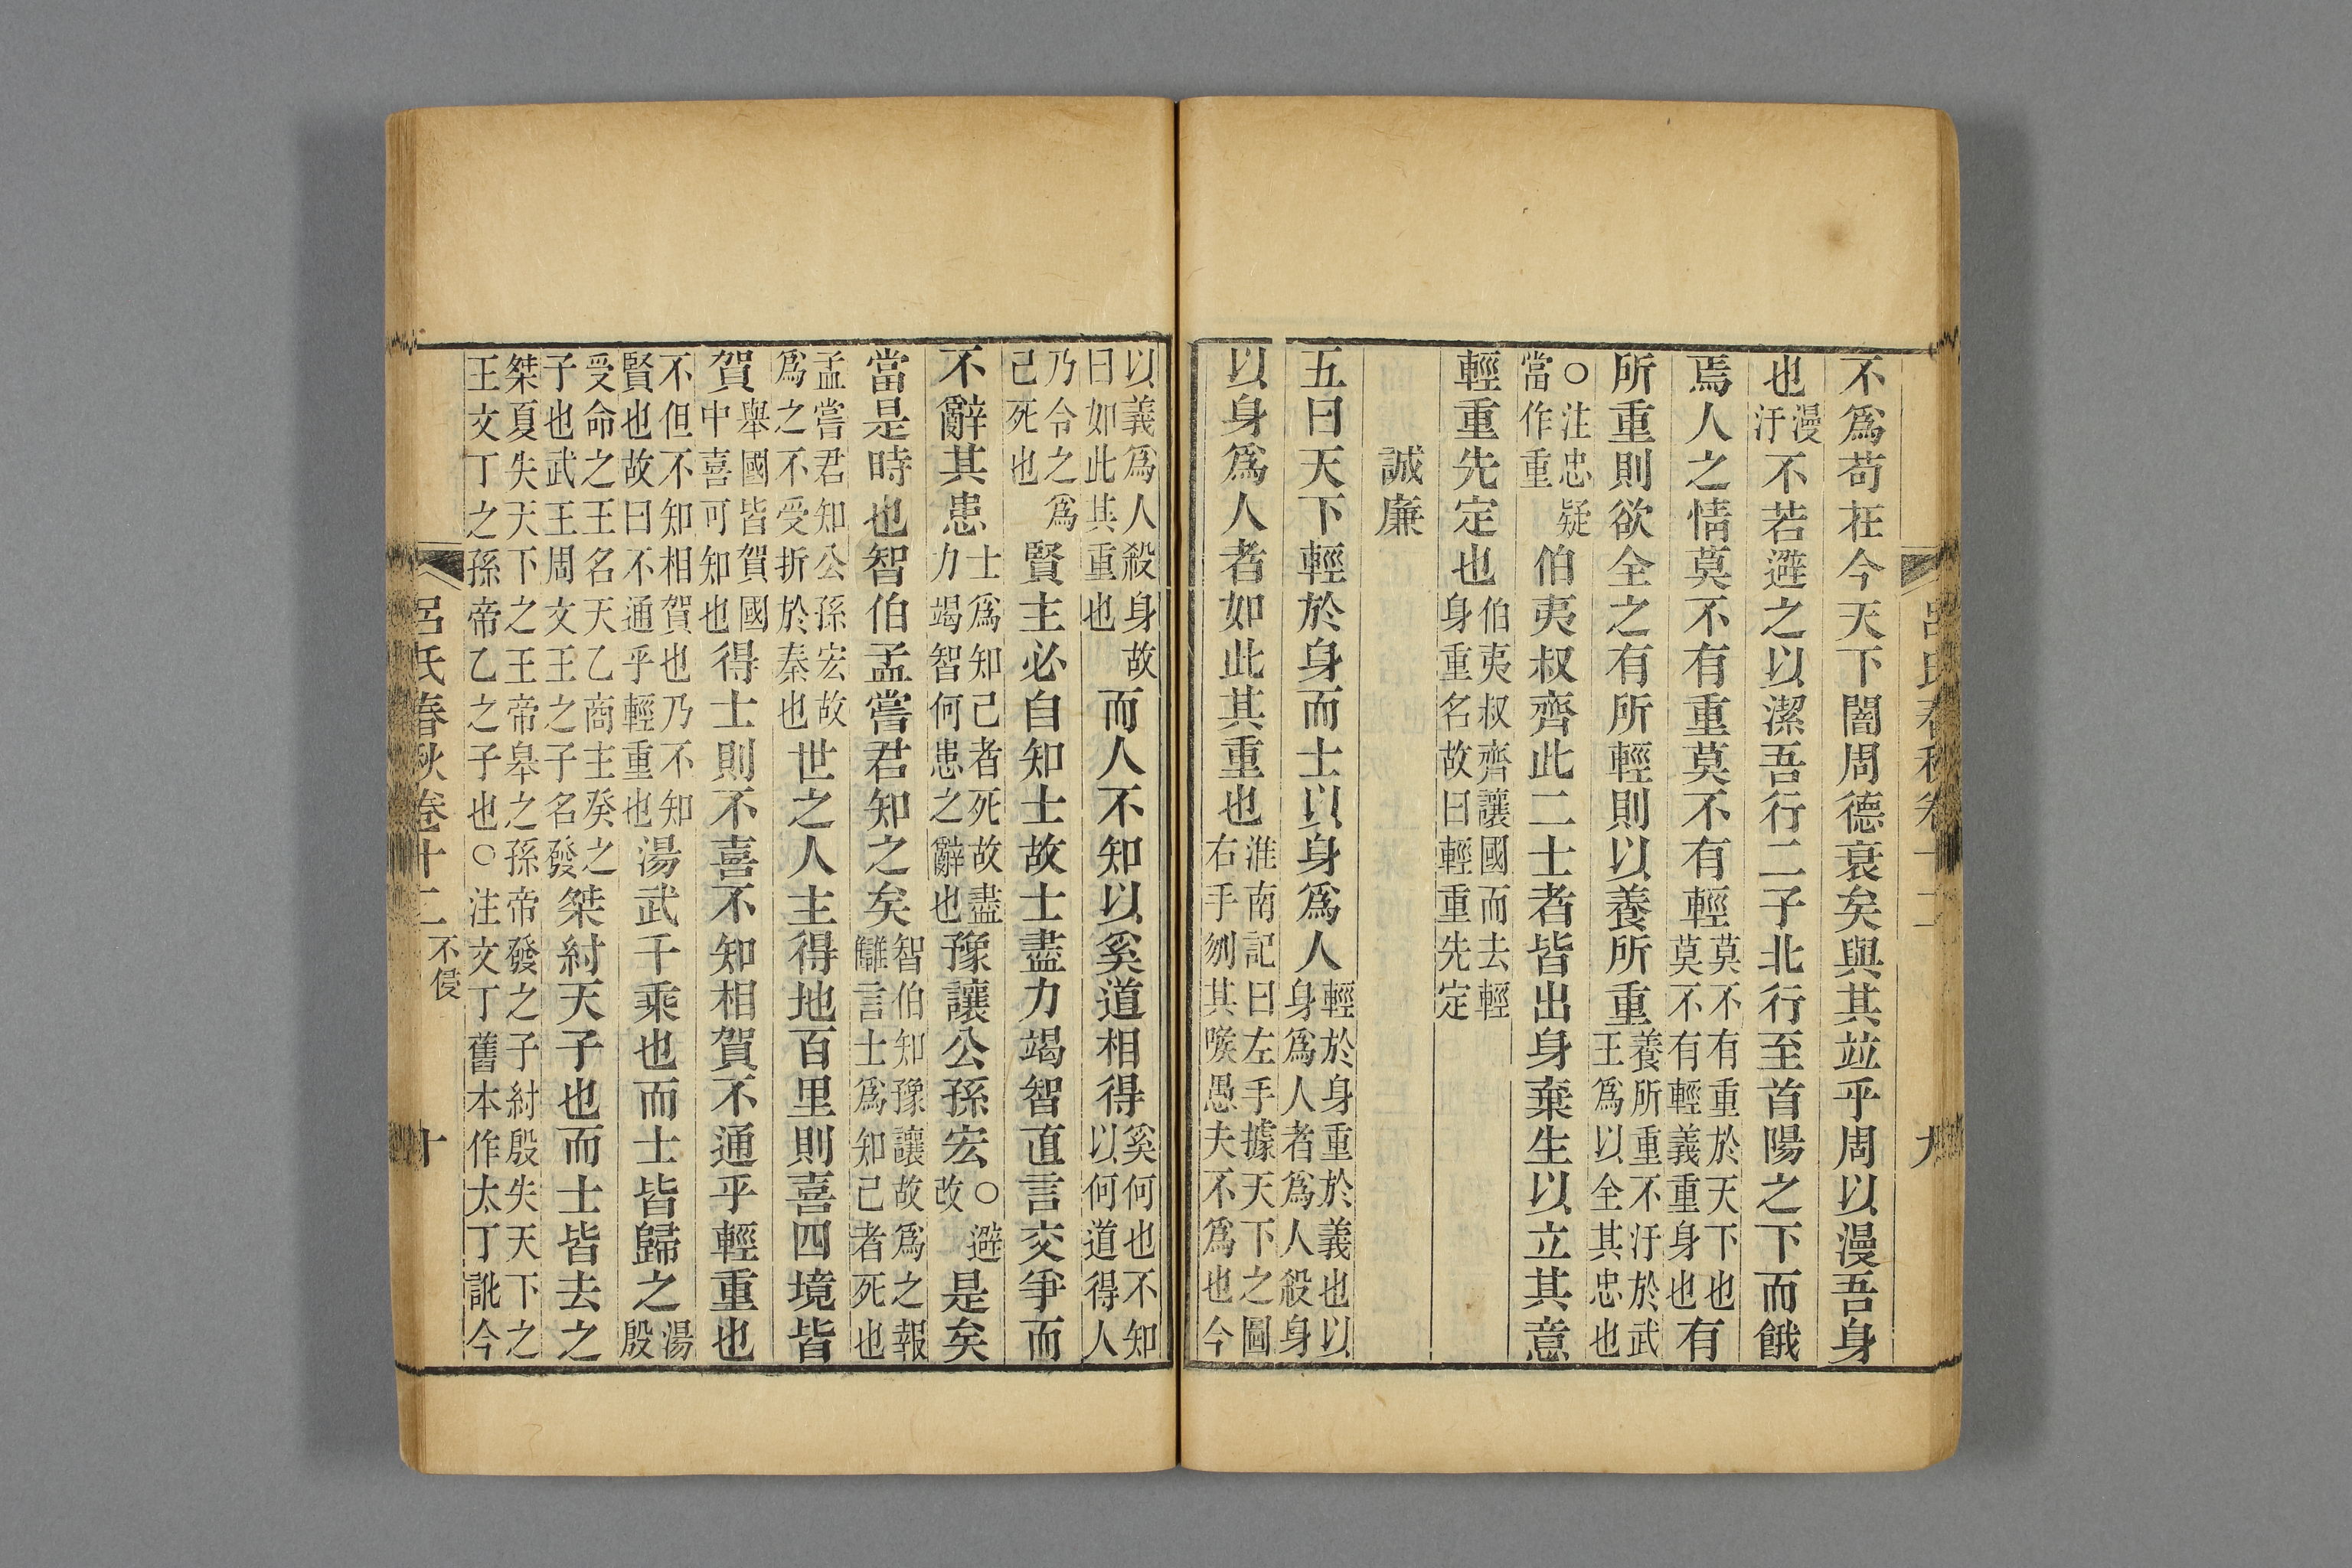 不爲苟在今天下闇周德衰矣與其竝乎周以漫吾身
也漫汙不若避之以潔吾行二子北行至首陽之下而餓
焉人之情莫不有重莫不有輕莫不有重於天下也莫不有輕義重身也有
所重則欲全之有所輕則以養所重養所重不汙於武王爲以全其忠也
○注忠疑當作重伯夷叔齊此二士者皆出身棄生以立其意
輕重先定也伯夷叔齊讓國而去輕身重名故曰輕重先定
誠廉
五曰天下輕於身而士以身爲人輕於身重於義也以身爲人者爲人殺身
以身爲人者如此其重也淮南記曰左手據天下之圖右手刎其喉愚夫不爲也今
呂氏春秋卷十二 九
以義爲人殺身故曰如此其重也而人不知以奚道相得奚何也不知以何道得人
乃令之爲己死也賢主必自知士故士盡力竭智直言交爭而
不辭其患士爲知己者死故盡力竭智何患之辭也豫讓公孫宏○避改是矣
當是時也智伯孟嘗君知之矣智伯知豫讓故爲之報讎言士爲知己者死也
孟嘗君知公孫宏故爲之不受折於秦也世之人主得地百里則喜四境皆
賀舉國皆賀國中喜可知也得士則不喜不知相賀不通乎輕重也
不但不知相賀也乃不知賢也故曰不通乎輕重也湯武千乘也而士皆歸之湯殷
受命之王名天乙商主癸之子也武王周文王之子名發桀紂天子也而士皆去之
桀夏失天下之王帝皋之孫帝發之子紂殷失天下之王文丁之孫帝乙之子也○注文丁舊本作太丁訛今
呂氏春秋卷十二 不侵 十